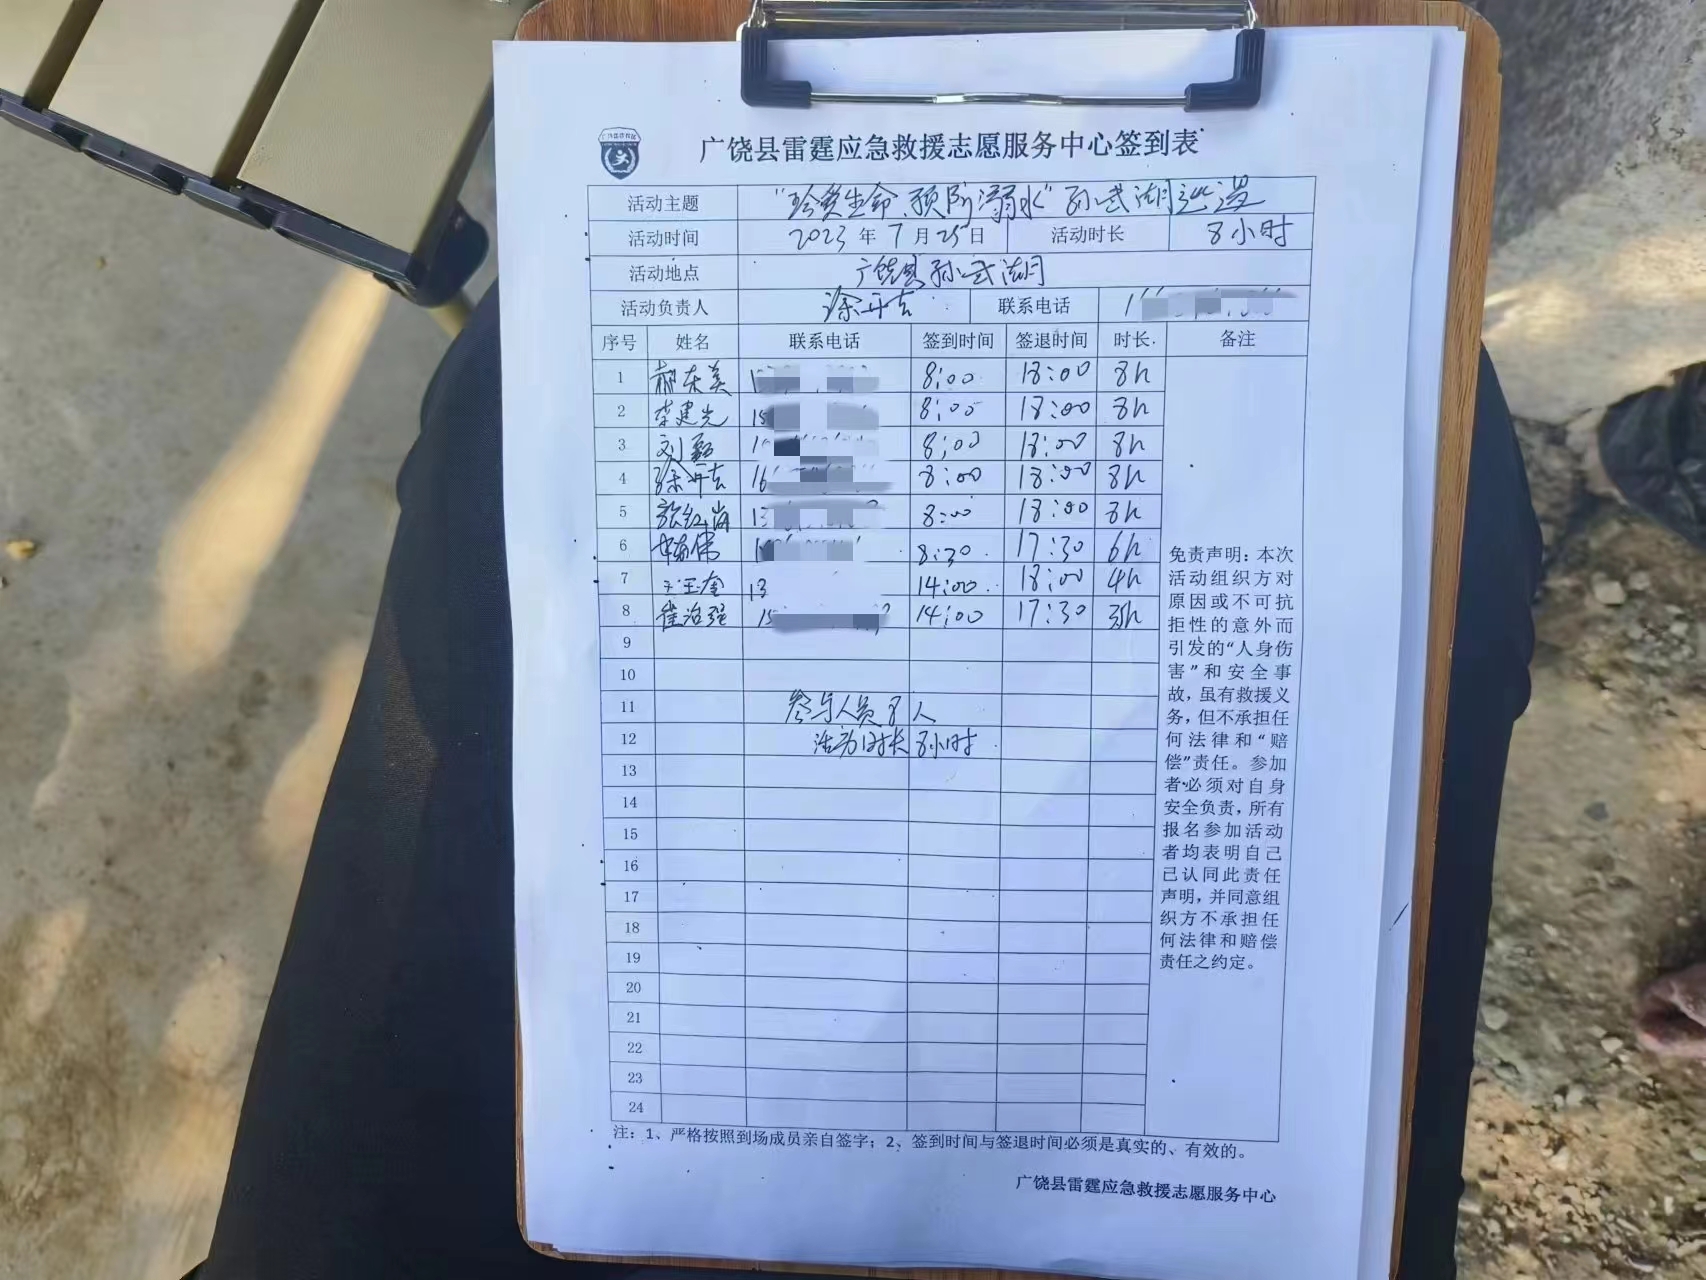 广饶县雷霆应急救援志愿服务中心签到表
活动主题 "珍爱生命、预防溺水"孙武湖巡逻
活动时间 2023年7月25日 活动时长 8小时
活动地点 广饶县孙武湖
活动负责人 徐丹吉 联系电话 1
序号 姓名 联系电话 签到时间 签退时间 时长 备注
1 郝东美 1 8:00 18:00 8h
2 李建光 15 8:00 18:00 8h
3 刘磊 1 8:00 18:00 8h
4 徐丹吉 16 8:00 18:00 8h
5 张红岗 13 8:00 18:00 8h
6 1 8:30 17:30 6h
7 13 14:00 18:00 4h
8 崔治强 15 14:00 17:30 3h
9
10
11 参与人员8人
12 活动时长8小时
13
14
15
16
17
18
19
20
21
22
23
24
免责声明：本次
活动组织方对
原因或不可抗
拒性的意外而
引发的“人身伤
害”和安全事
故，虽有救援义
务，但不承担任
何法律和“赔
偿”责任。参加
者必须对自身
安全负责，所有
报名参加活动
者均表明自己
已认同此责任
声明，并同意组
织方不承担任
何法律和赔偿
责任之约定。
注：1、严格按照到场成员亲自签字；2、签到时间与签退时间必须是真实的、有效的。
广饶县雷霆应急救援志愿服务中心